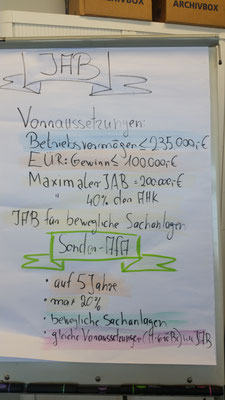 ARCHIVBOX
ARCHIVBOX
IAB
Vorraussetzungen:
Betriebsvermögen ≤ 235000,-€
EÜR: Gewinn ≤ 100.000,-€
Maximaler IAB = 200.000,-€
" 40% der AHK
IAB für bewegliche Sachanlagen
Sonder-AfA
• auf 5 Jahre
• max 20%
• bewegliche Sachanlagen
• gleiche Voraussetzungen wie IAB